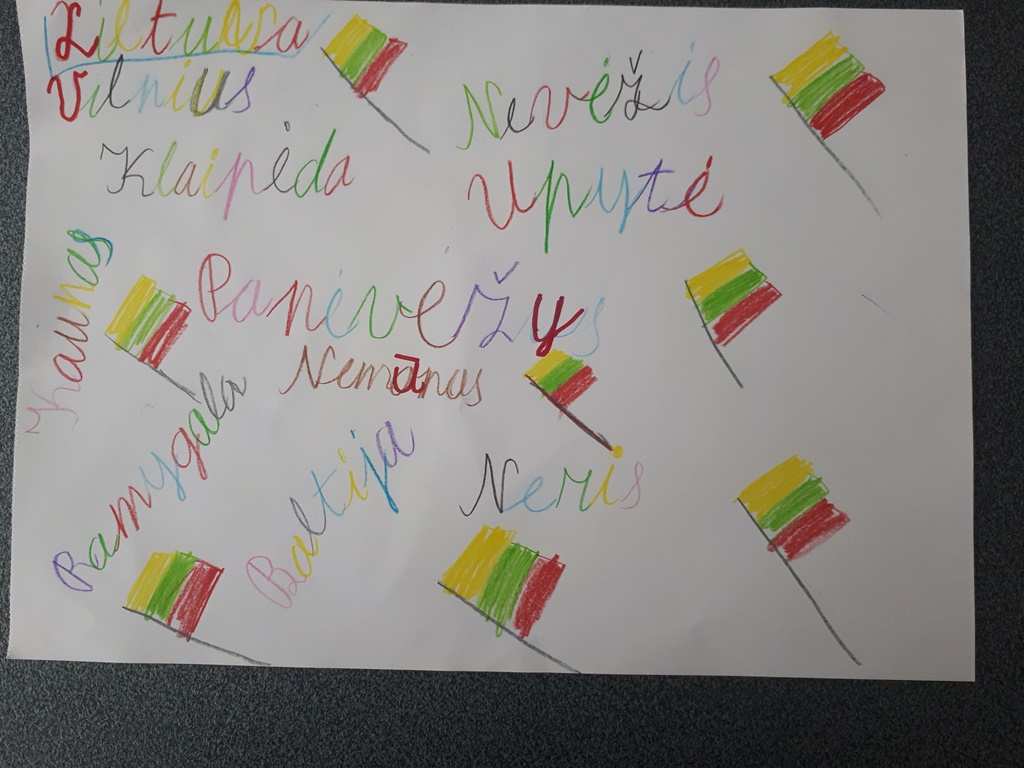 Lietuva
Vilnius
Nevėžis
Klaipėda
Upytė
Kaunas
Panevėžys
Nemanas
Ramygala
Baltija
Neris